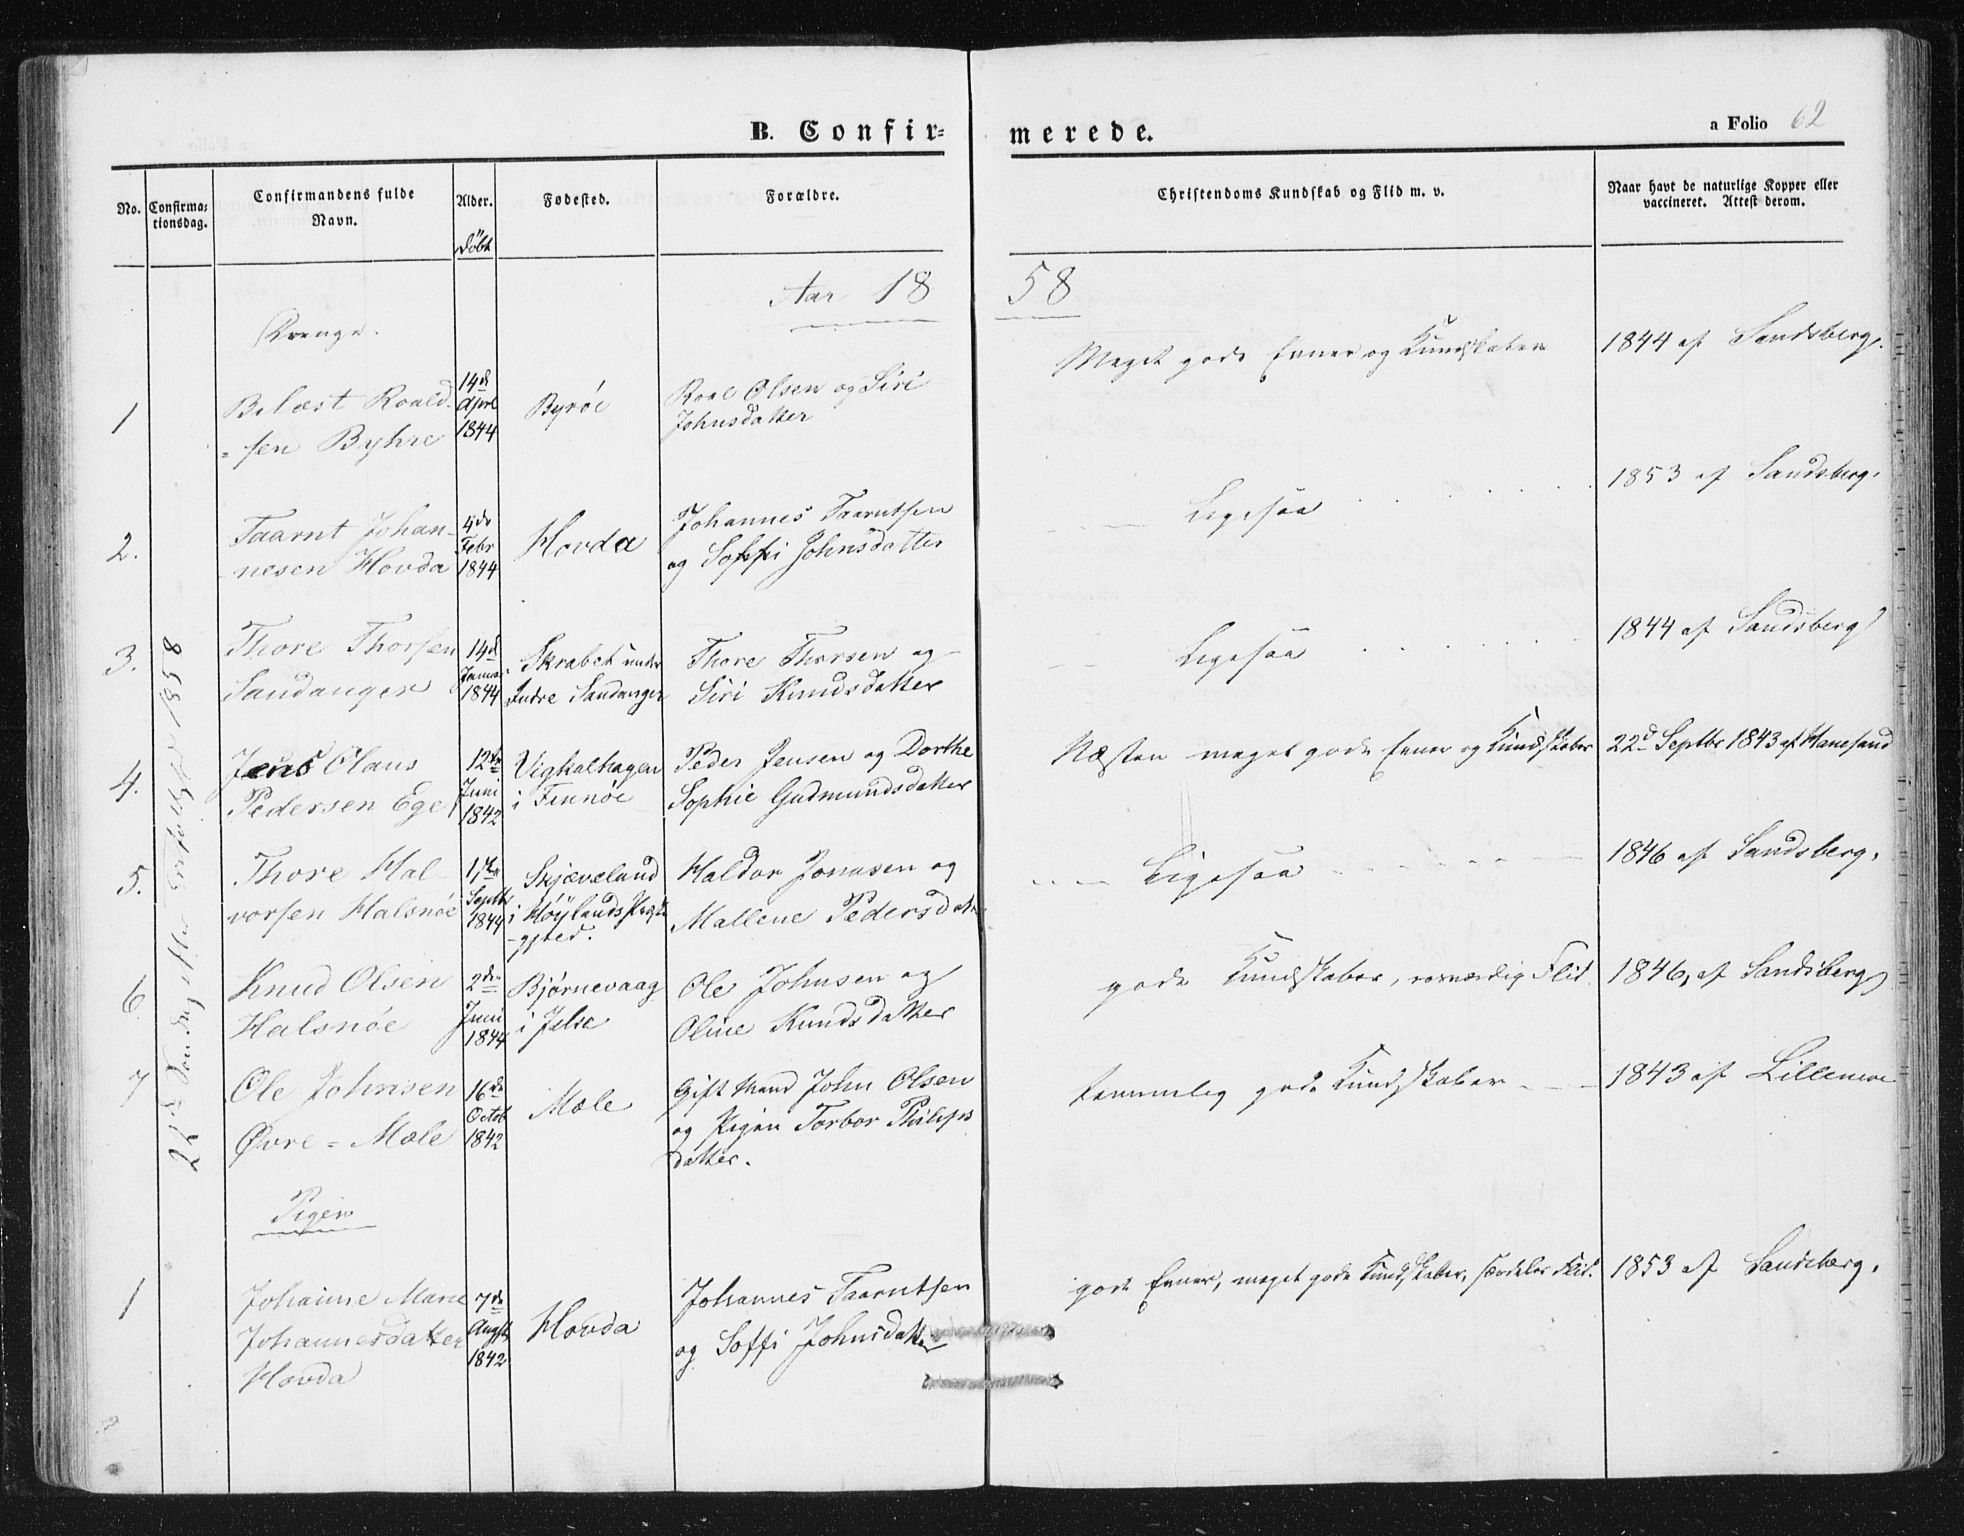 B. Confir=
merede.
a Folio 62
No.
Confirma=
tionsdag.
Confirmandens fulde
Navn.
Alder.
döbt
Fødested.
Forældre.
Christendoms Kundskab og Flid m. v.
Naar havt de naturlige Kopper eller
vaccineret. Attest derom.
Aar 18
58
Drenge.
22de Søndag efter Trinitatis 1858
1
Roald-
=sen Byhre
14de
April
1844
Byröe
Roal Olsen og Siri
Johnsdatter
Meget gode Evner og Kundskaber
1844 af Sandsberg.
2.
Taarnt Johan-
nesen Hovda
4de
Febr
1844
Hovda
Johannes Taarntsen
og Soffi Johnsdatter
Ligesaa
1853 af Sandsberg.
3.
Thore Thorsen
Sandanger
14d
Januar
1844
Skrabet under
Indre Sandanger
Thore Thorsen og
Siri Knudsdatter
Ligesaa
1844 af Sandsberg
4.
Jens Olaus
Pedersen Ege
12te
Juni
1842
Vighalhagen
i Finnöe
Peder Jensen og Dorthe
Sophie Gudmundsdatter
Næsten meget gode Evner og Kundskaber
22d Septbr 1843 af Hanesand
5.
Thore Hal-
vorsen Halsnöe
Septb
1844
Skjæveland
i Höylands
-gjeld.
Haldor Jonasen og
Mallene Pedersdatr
Ligesaa
1846 af Sandsberg.
6
Knud Olsen
Halsnöe
2den
Juni
1844
Bjørnevaag
i Jelse
Ole Johnsen og
Oline Knudsdatter
gode Kundskaber, rosværdig Flid
1846, af Sandsberg
7
Ole Johnsen
Øvre=Mæle
16de
Octob
1842
Mæle
Gift Mand John Olsen
og Pigen Torbor Philips
datter.
temmelig gode Kundskaber
1843 af
Piger
1
Johanne Marie
Johannesdatter
Hovda
7de
Augst
1842
Hovda
Johannes Taarntsen
og Soffi Johnsdatter
gode Evner, meget gode Kundskaber, særdeles Flid.
1853 af Sandsberg.